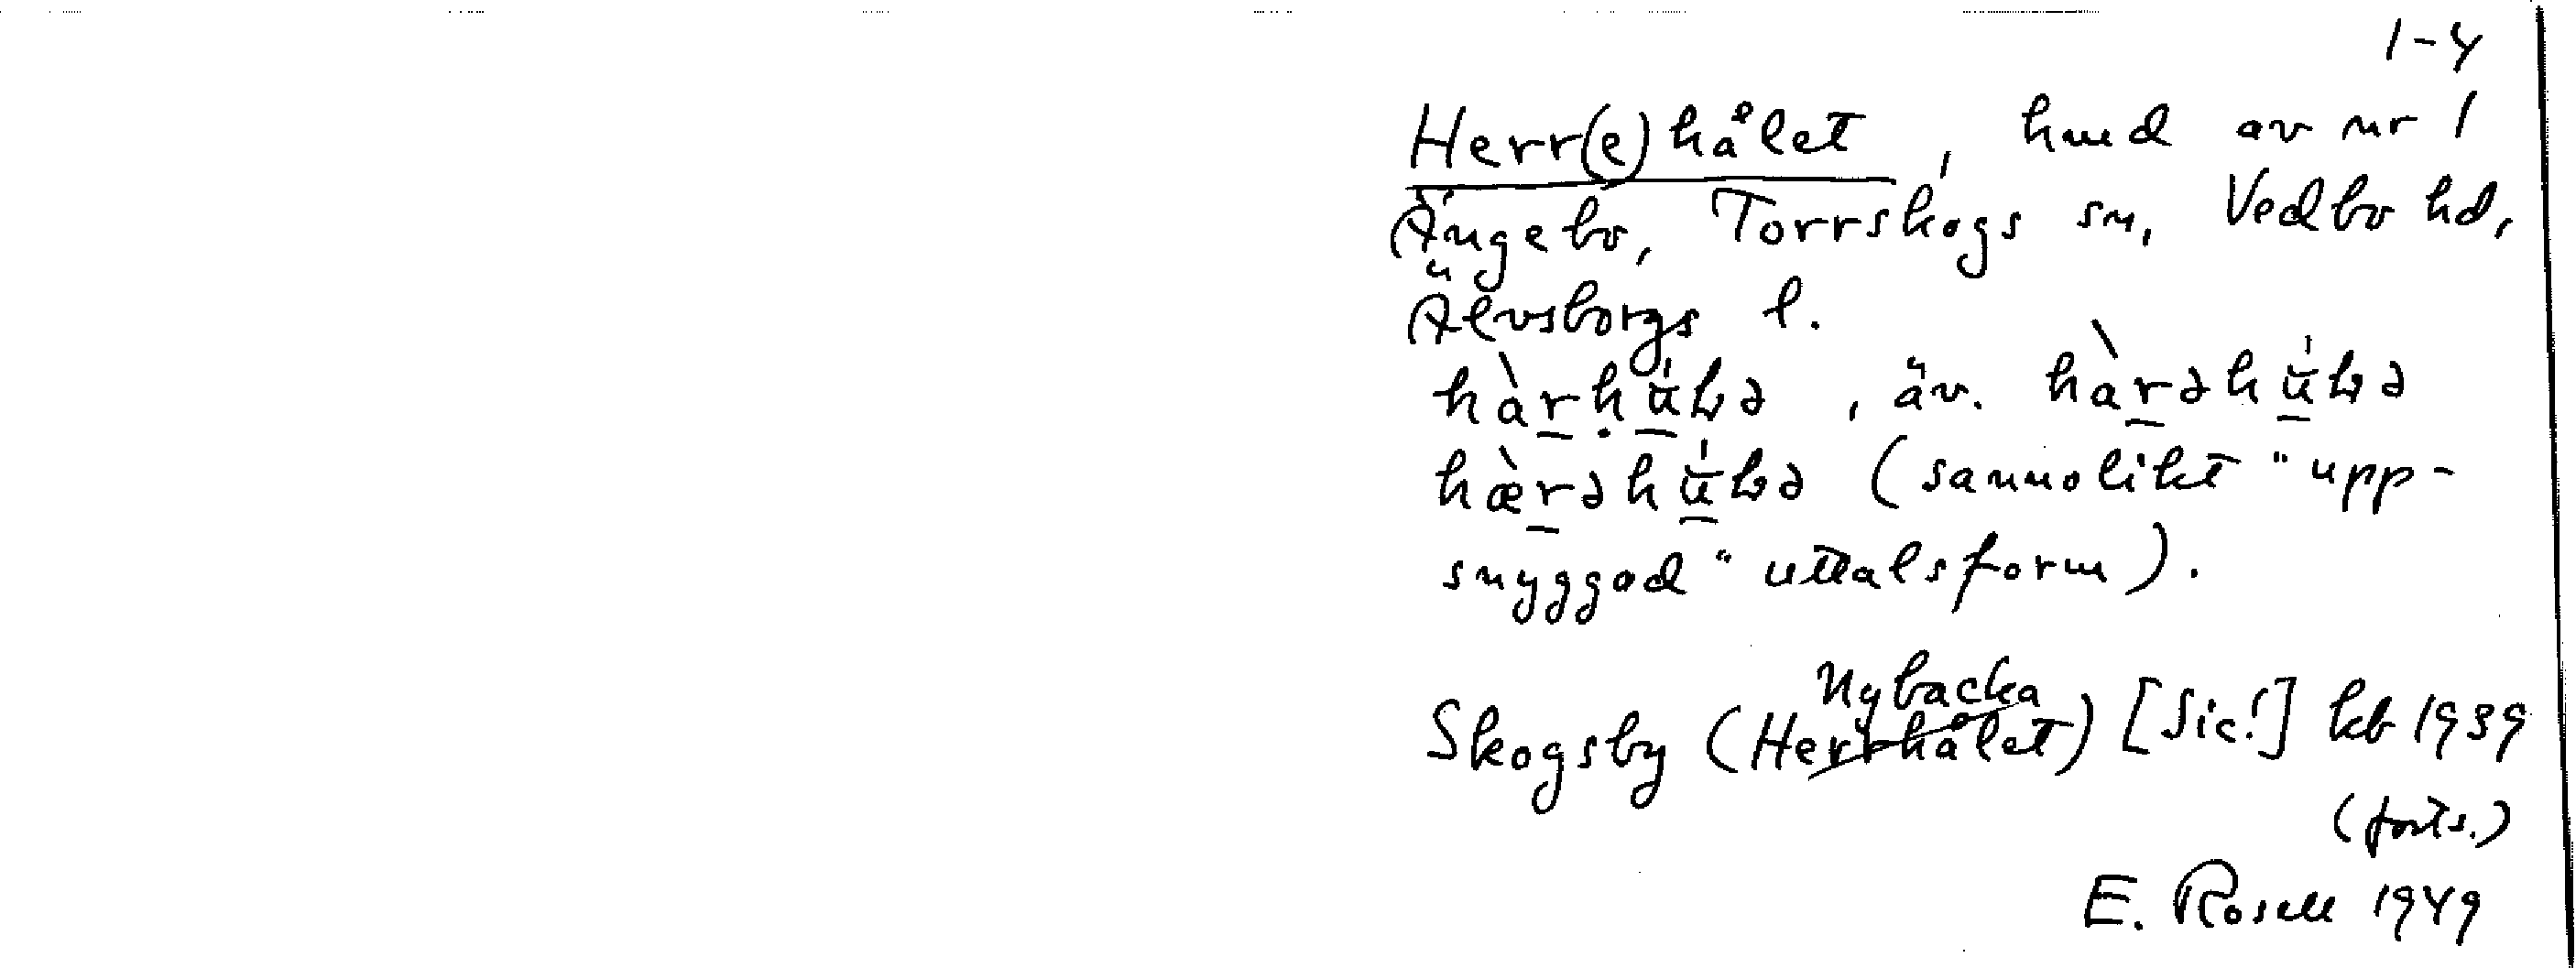 1-4
Herr(e)hålet, hmd av nr 1
Ängebo, Torrskogs sn, Vedbo hd,
Älvsborgs l.
, äv.
(sannolikt "upp-
snyggad" uttalsform).
Nybacka
Skogsby (Herrhålet) [Sic!] kb 1939
(forts.)
E. Rosell 1949